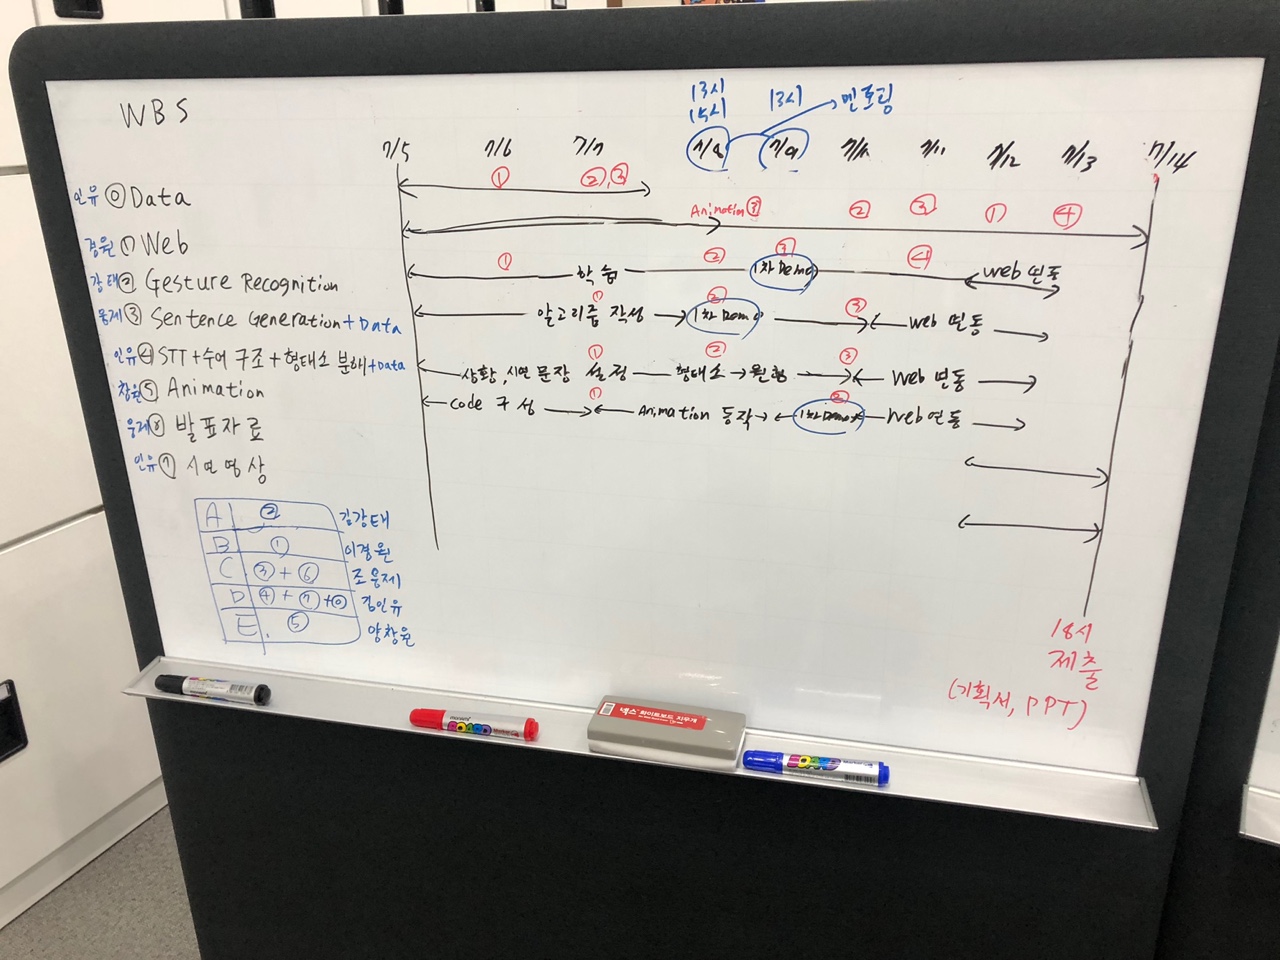 WBS
13시
15시
13시
멘토링
7/5 7/6 7/7 7/8 7/9 7/10 7/11 7/12 7/13 7/14
인유 ⓪ Data
① ②,③
경원 ① Web
Animation ⑦ ② ③ ① ④
강태 ② Gesture Recognition
① ② ③ ④
학습 1차 Demo web 연동
웅제 ③ Sentence Generation + Data
① ② ③
알고리즘 작성 1차 Demo web 연동
인유 ④ STT + 수어 구조 + 형태소 분해 + Data
① ② ③
상황, 시연 문장 설정 형태소 → 원형 Web 연동
창원 ⑤ Animation
① ②
Code 구성 Animation 동작 1차 Demo Web 연동
웅제 발표자료
인유 ⑦ 시연영상
A ② 김강태
B ① 이경원
C ③ + ⑥ 조웅제
D ④ + ⑦ + ⓪ 김인유
E ⑤ 양창원
18시
제출
(기획서, PPT)
넥스 화이트보드 지우개
BOARD
BOARD